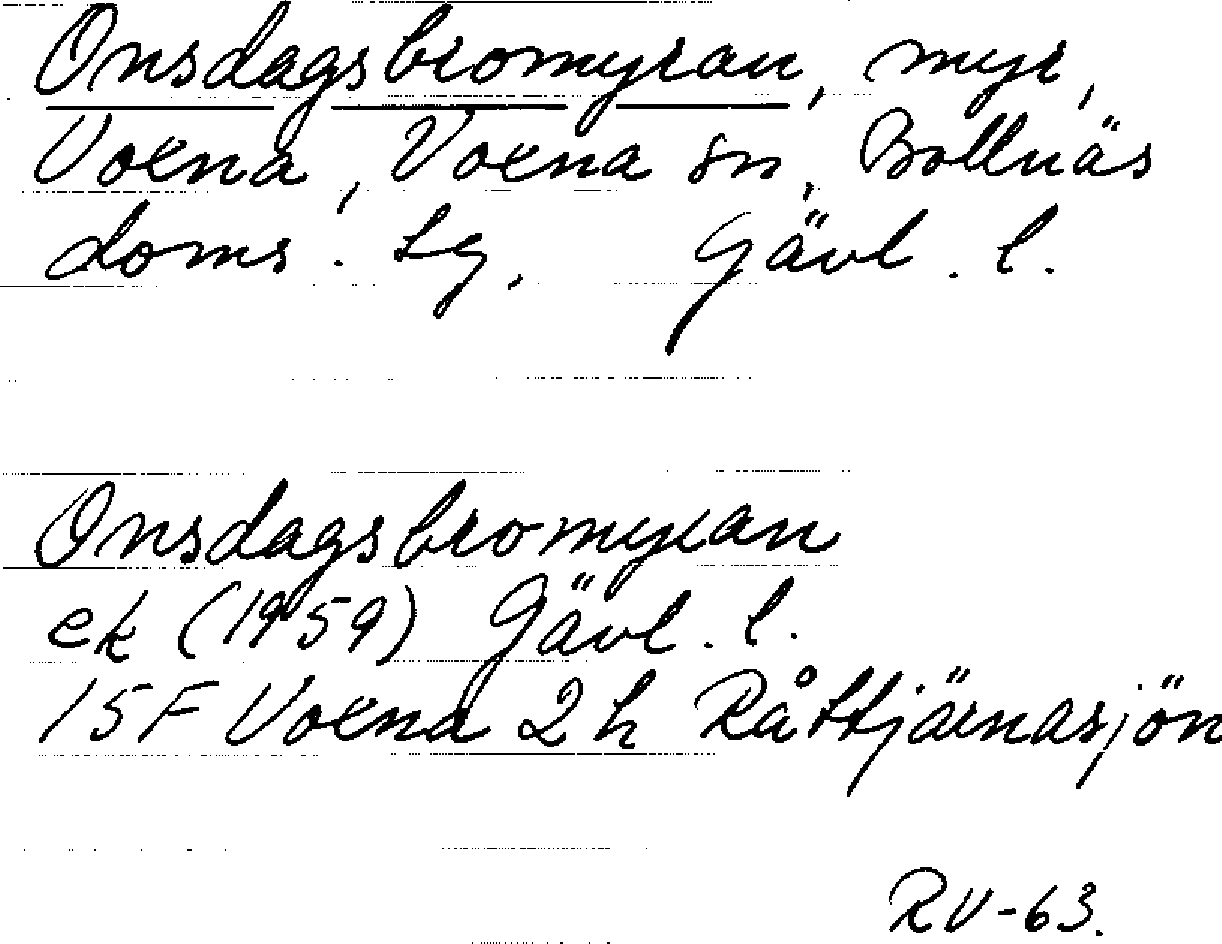 Onsdagsbromyran, myr,
Voxna, Voxna sn, Bollnäs
doms. lg. Gävl. l.
Onsdagsbromyran
ek (1959) Gävl. l.
15F Voxna 2h Råttjärnasjön
RV-63.